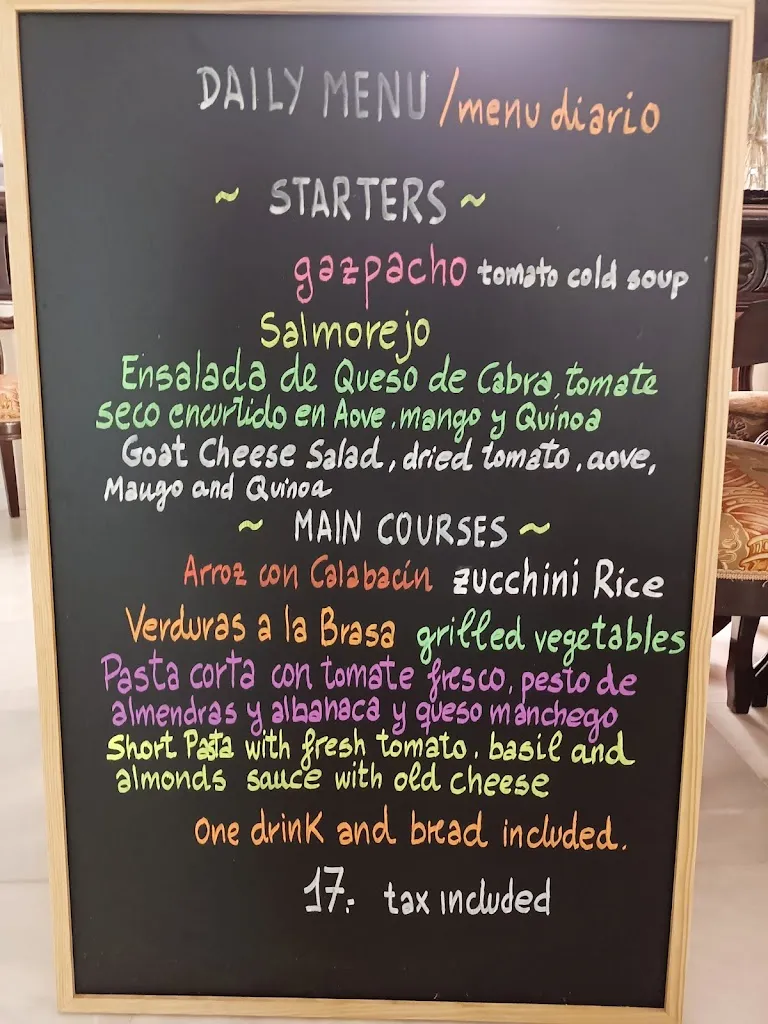 DAILY MENU / menu diario
~ STARTERS ~
gazpacho tomato cold soup
Salmorejo
Ensalada de Queso de Cabra, tomate
seco encurtido en Aove, mango y Quinoa
Goat Cheese Salad, dried tomato, aove,
Mango and Quinoa
~ MAIN COURSES ~
Arroz con Calabacín zucchini Rice
Verduras a la Brasa grilled vegetables
Pasta corta con tomate fresco, pesto de
almendras y albahaca y queso manchego
Short Pasta with fresh tomato, basil and
almonds sauce with old cheese
One drink and bread included.
17.- tax included